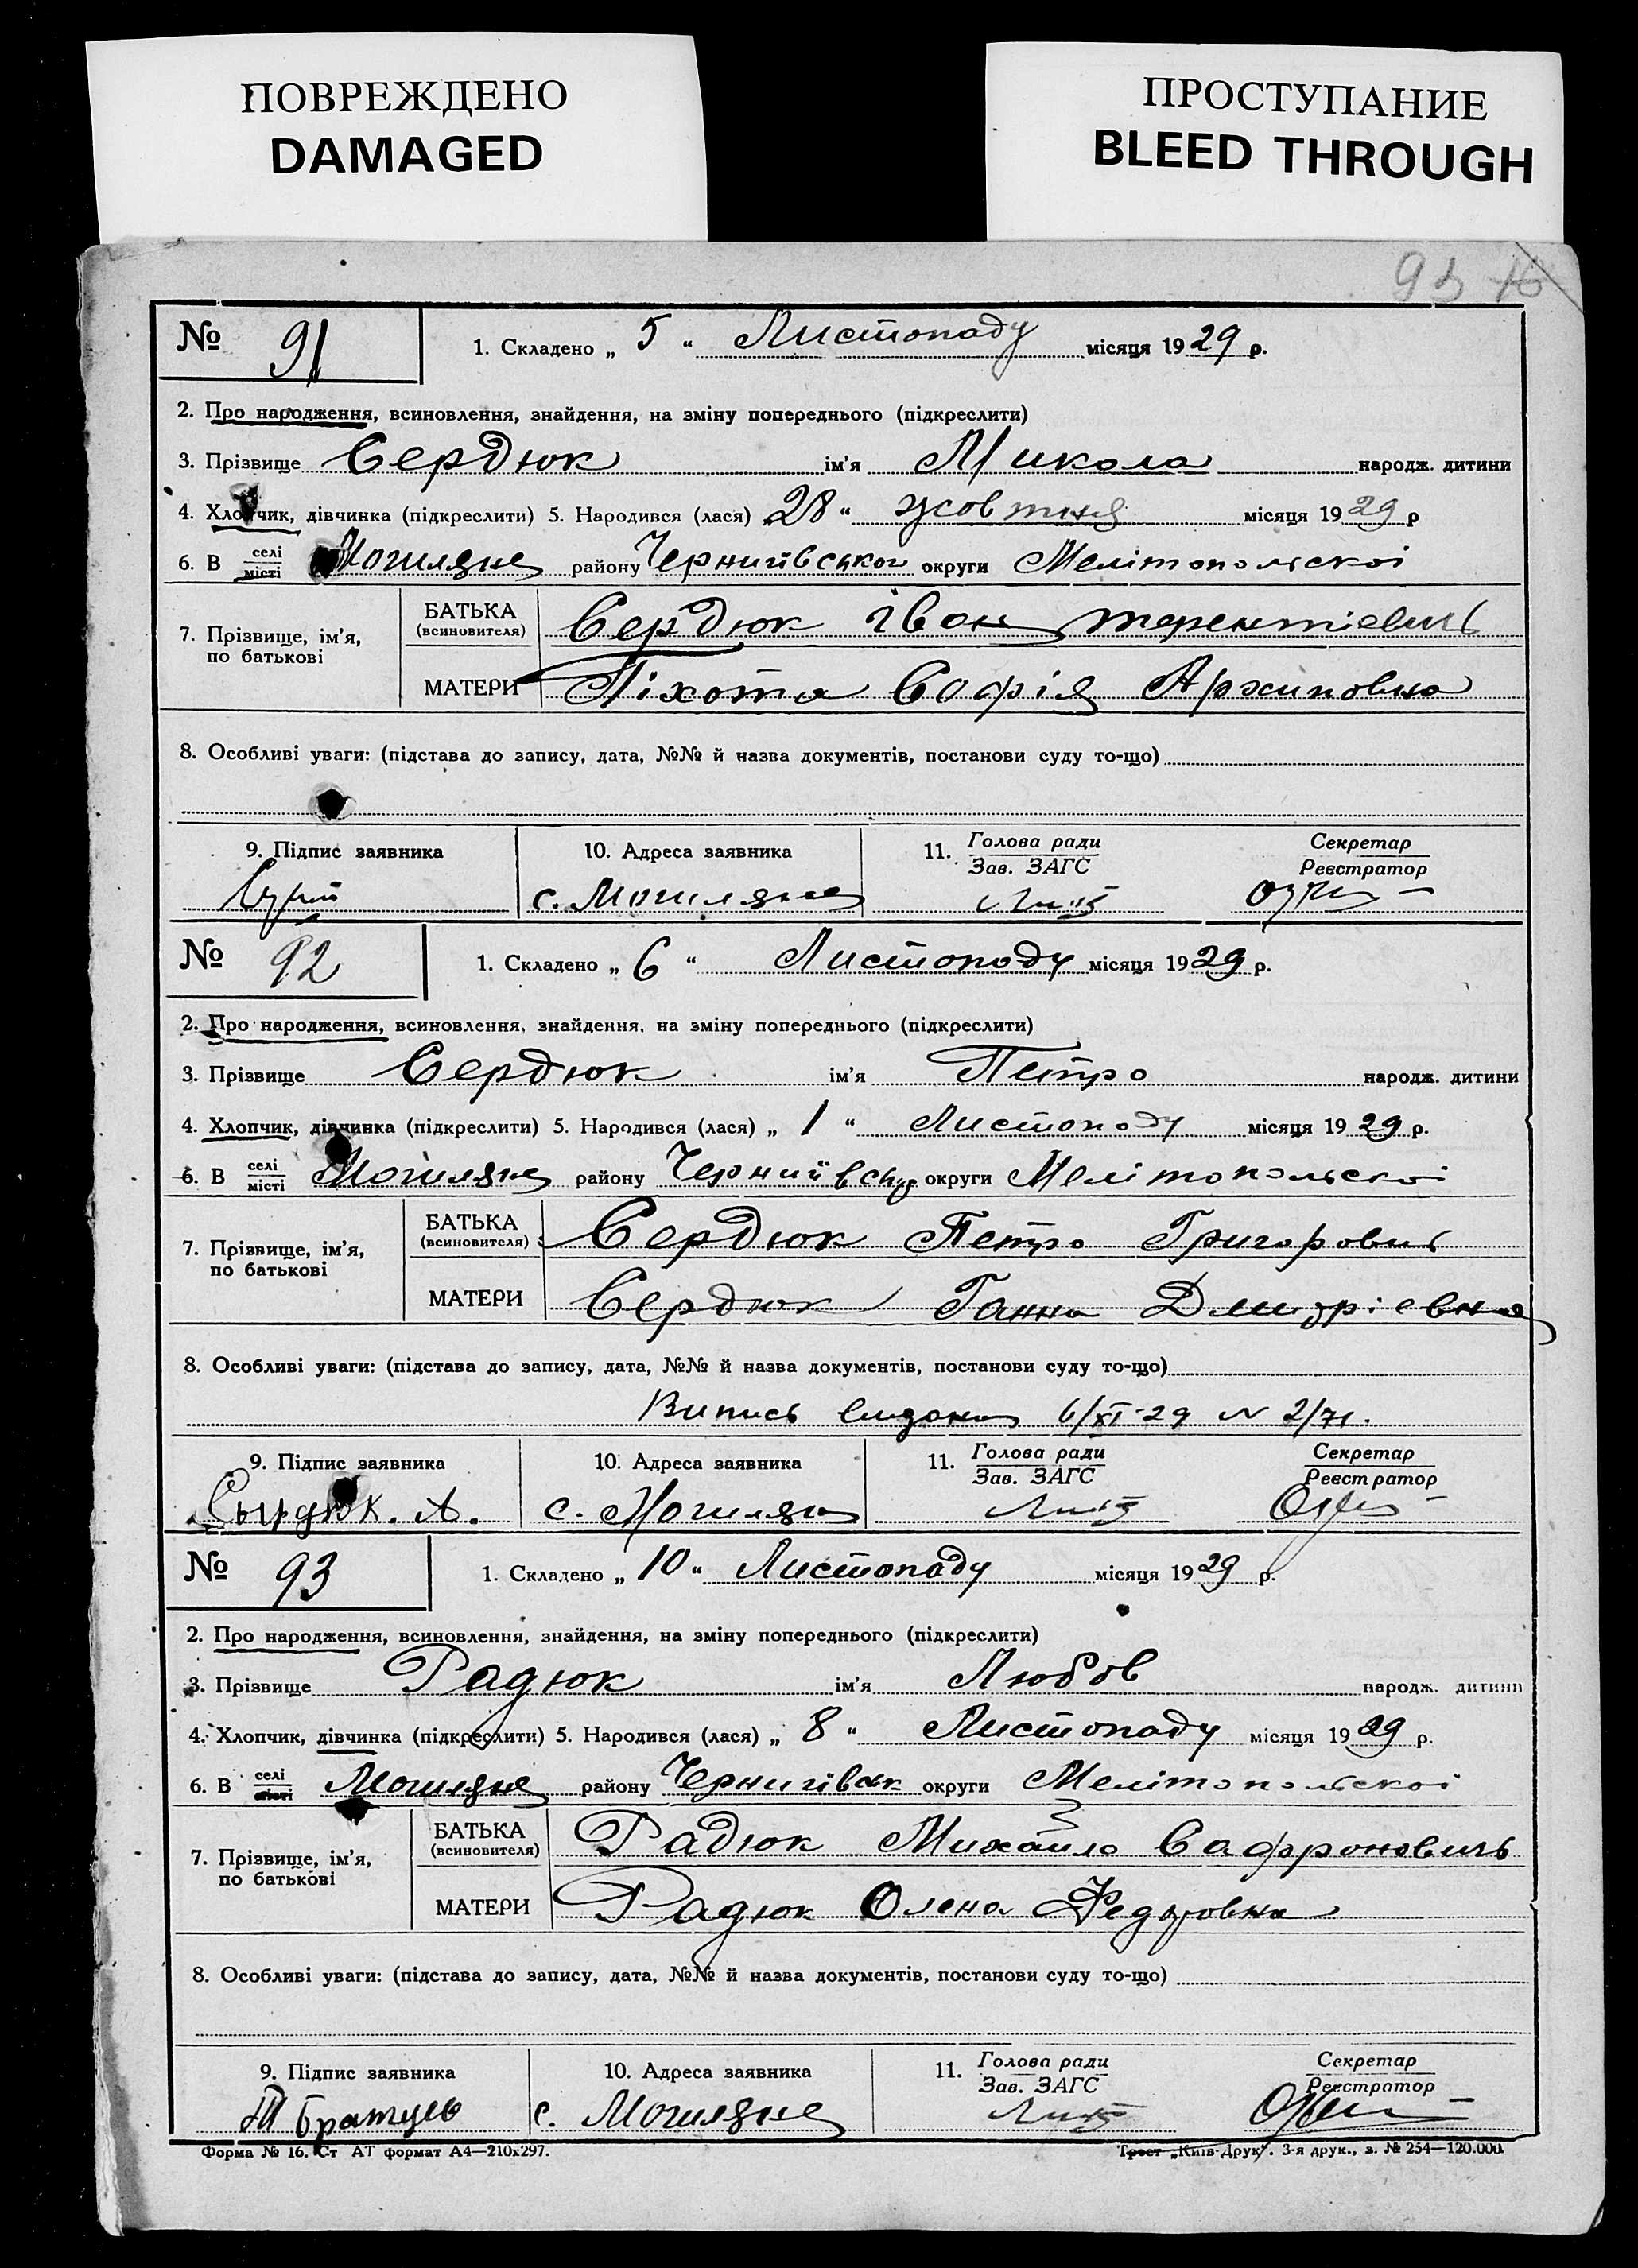 ПОВРЕЖДЕНО
DAMAGED
ПРОСТУПАНИЕ
BLEED THROUGH
№ 91 1. Складено „ 5 “ Листопаду місяця 1929 р.
2. Про народження, всиновлення, знайдення, на зміну попереднього (підкреслити)
3. Прізвище Сердюк ім'я Микола народж. дитини
4. Хлопчик, дівчинка (підкреслити) 5. Народився (лася) „28“ жовтня місяця 1929 р
6. В селі місті Могиляне району округи Мелітопольскоі
7. Прізвище, ім'я, по батькові
БАТЬКА (всиновителя) Сердюк Іван Терентіевичь
МАТЕРИ Піхота Софія Архиповна
8. Особливі уваги: (підстава до запису, дата, №№ й назва документів, постанови суду то-що)
9. Підпис заявника 10. Адреса заявника 11. Голова ради Зав. ЗАГС Секретар Реєстратор
с. Могиляне
№ 92 1. Складено „ 6 “ Листопаду місяця 1929 р.
2. Про народження, всиновлення, знайдення, на зміну попереднього (підкреслити)
3. Прізвище Сердюк ім'я Петро народж. дитини
4. Хлопчик, дівчинка (підкреслити) 5. Народився (лася) „ 1 “ Листопаду місяця 1929 р.
6. В селі місті Могиляне району округи Мелітопольскоі
7. Прізвище, ім'я, по батькові
БАТЬКА (всиновителя) Сердюк Петро Григорович
МАТЕРИ Сердюк Ганна Дмитріевна
8. Особливі уваги: (підстава до запису, дата, №№ й назва документів, постанови суду то-що)
Випись видана 6/XI-29 N 2/71.
9. Підпис заявника 10. Адреса заявника 11. Голова ради Зав. ЗАГС Секретар Реєстратор
с. Могиляне
№ 93 1. Складено „ 10 “ Листопаду місяця 1929 р.
2. Про народження, всиновлення, знайдення, на зміну попереднього (підкреслити)
3. Прізвище Радюк ім'я Любов народж. дитини
4. Хлопчик, дівчинка (підкреслити) 5. Народився (лася) „ 8 “ Листопаду місяця 1929 р.
6. В селі місті Могиляне району Чернигівськ округи Мелітопольскоі
7. Прізвище, ім'я, по батькові
БАТЬКА (всиновителя) Радюк Михайло Сафроновичь
МАТЕРИ Радюк Олена Федоровна
8. Особливі уваги: (підстава до запису, дата, №№ й назва документів, постанови суду то-що)
9. Підпис заявника 10. Адреса заявника 11. Голова ради Зав. ЗАГС Секретар Реєстратор
с. Могиляне
Форма № 16. Ст АТ формат А4—210х297. Трест „Київ-Друк“. 3-я друк., з. № 254—120.000.